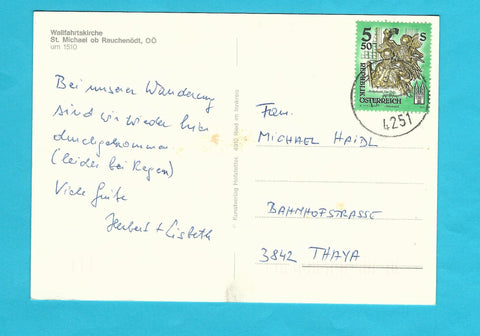 Wallfahrtskirche
St. Michael ob Rauchenödt, OÖ
um 1510
Bei unserer Wanderung
sind wir wieder hier
durchgekommen
(leider bei Regen)
Viele Grüße
Herbert + Lisbeth
Kunstverlag Hofstetter, 4910 Ried im Innkreis
5 S
50
REPUBLIK
ÖSTERREICH
4251
Fam.
MICHAEL HAIDL
BAHNHOFSTRASSE
3842 THAYA